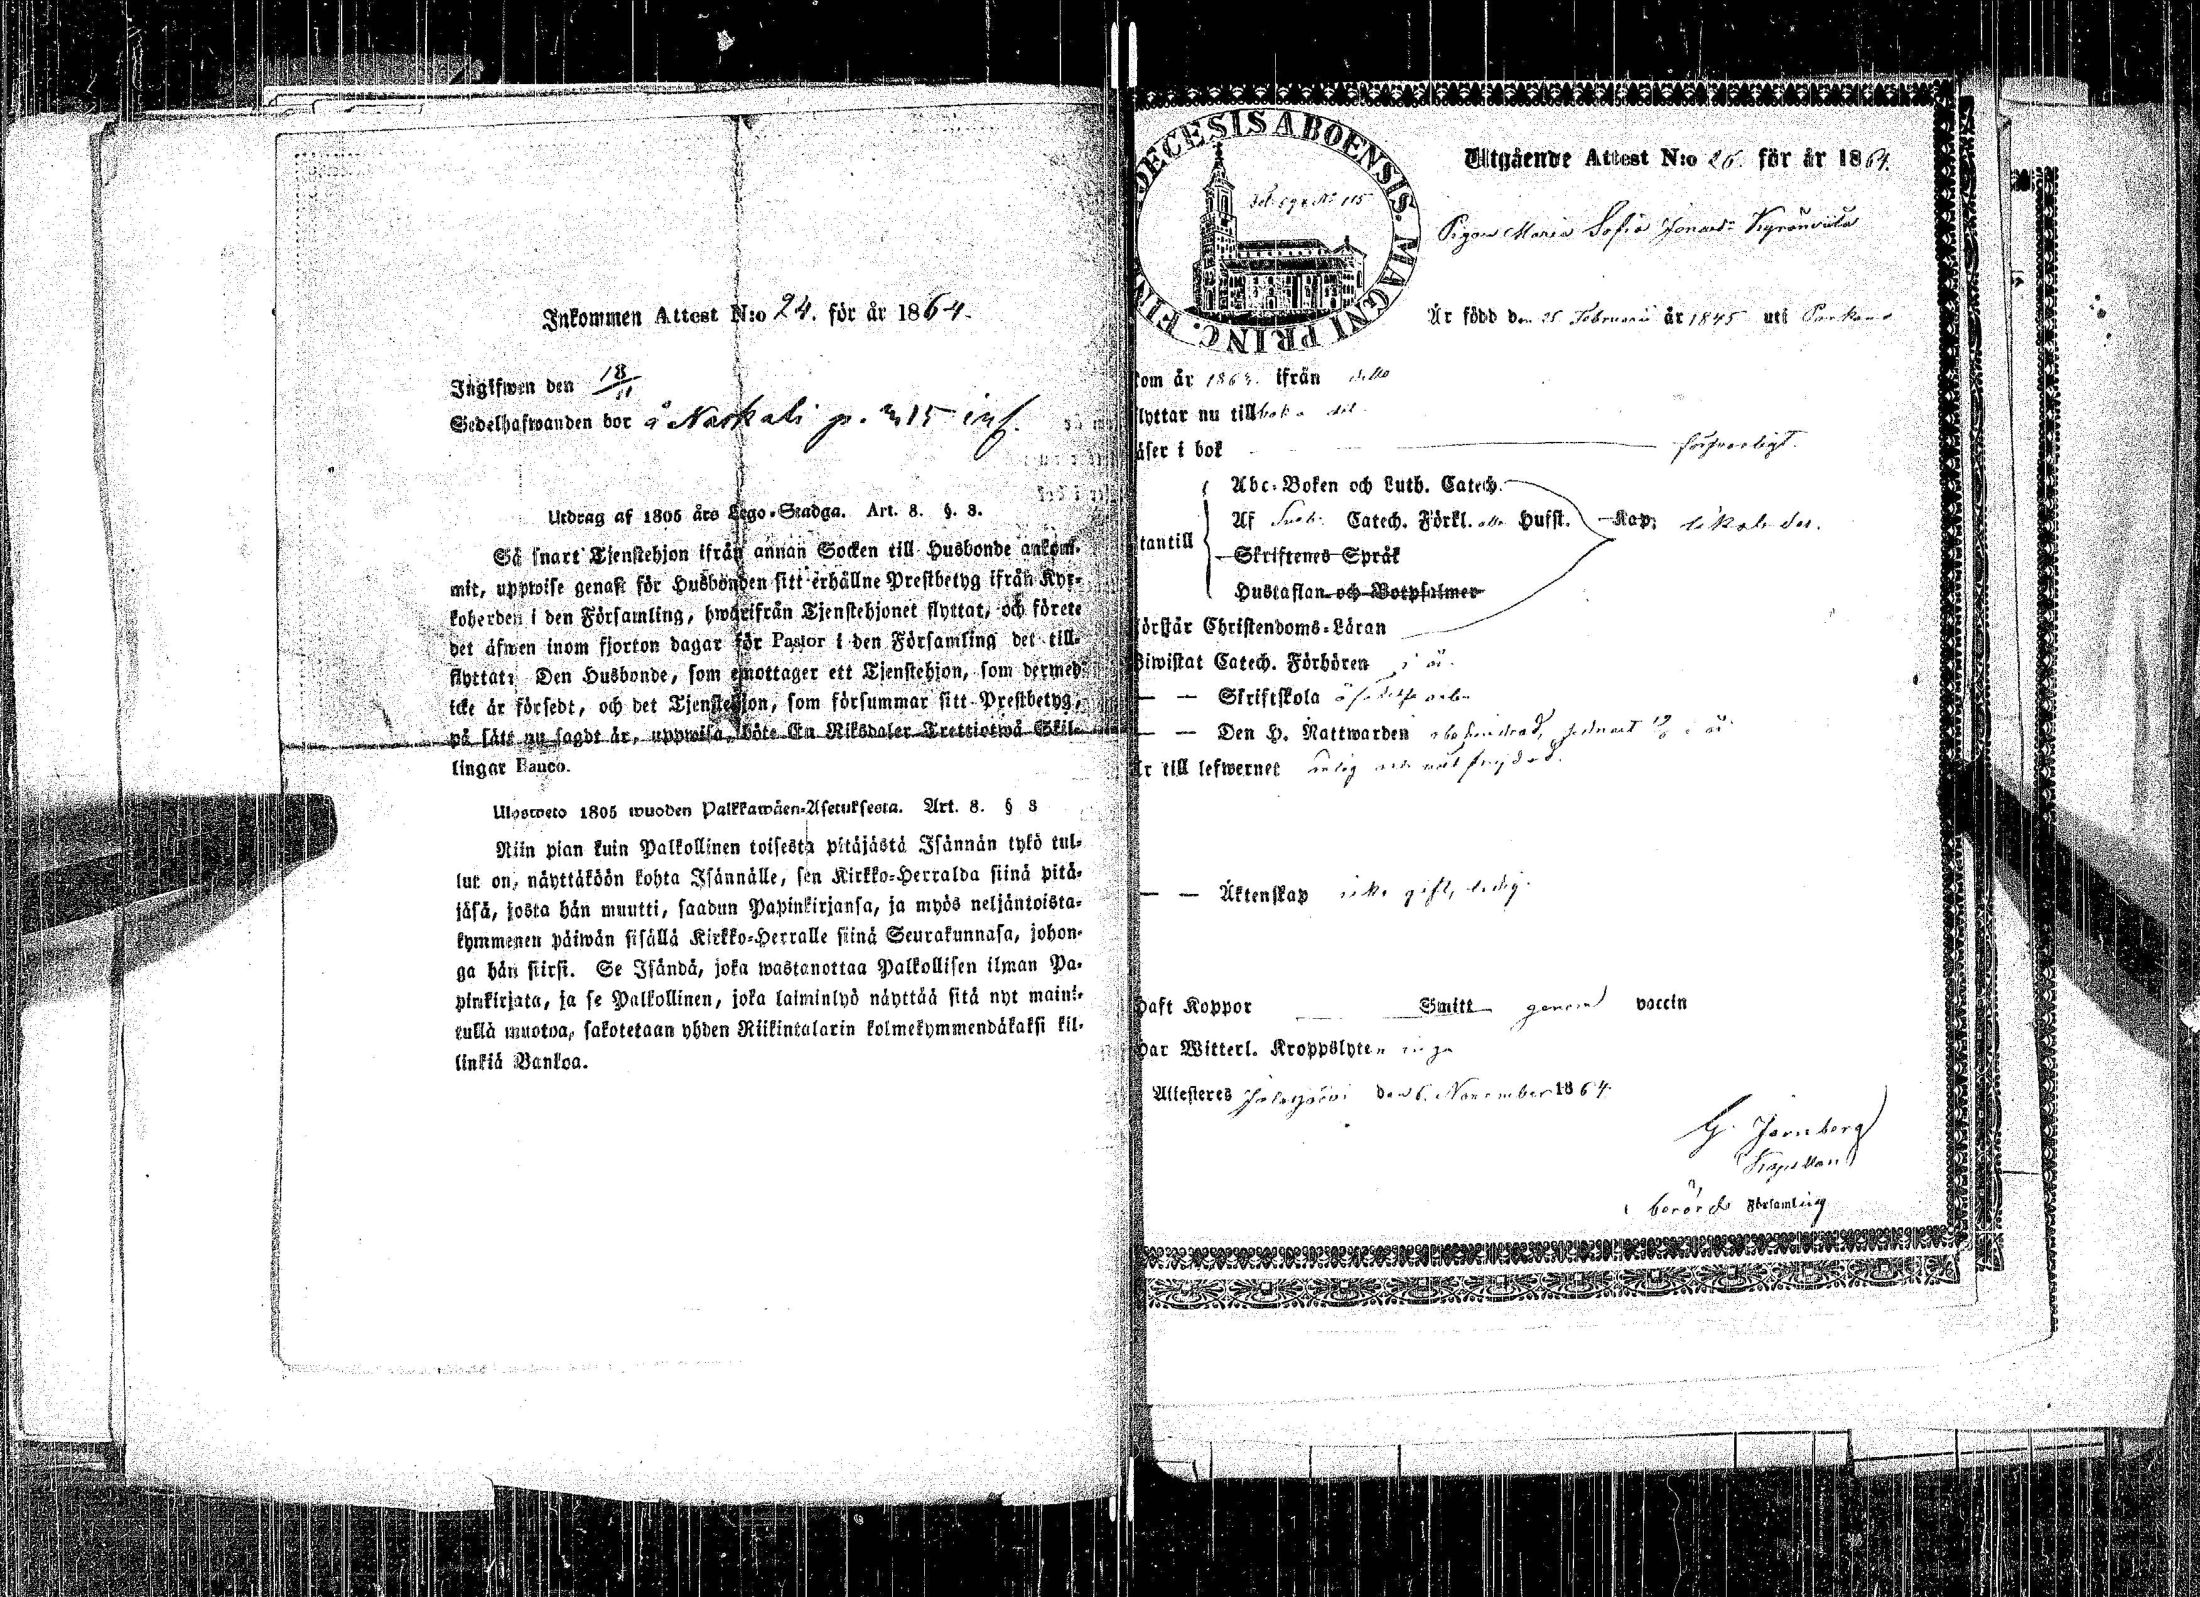 Inkommen Attest N:o 24. för år 1864.
Ingifwen den 18/11
Sedelhafwanden bor å Naskali p. 15 inf.
Utdrag af 1805 års Lego-Stadga. Art. 8. §. 8.
Så snart Tjenstehjon ifrån annan Socken till Husbonde ankom-
mit, uppwise genast för Husbonden sitt erhållne Prestbetyg ifrån Kyr-
koherden i den Församling, hwarifrån Tjenstehjonet flyttat, och förete
det äfwen inom fjorton dagar för Pastor i den Församling det till-
flyttat: Den Husbonde, som emottager ett Tjenstehjon, som dermed
icke är försedt, och det Tjenstehjon, som försummar sitt Prestbetyg,
på sätt nu sagdt är, uppwisa, böte En Riksdaler Trettiotwå Skil-
lingar Banco.
Ulosweto 1805 wuoden Palkkawäen-Asetuksesta. Art. 8. § 8
Niin pian kuin Palkollinen toisesta pitäjästä Isännän tykö tul-
lut on, näyttäköön kohta Isännälle, sen Kirkko-Herralda siinä pitä-
jäsä, josta hän muutti, saadun Papinkirjansa, ja myös neljäntoista-
kymmenen päiwän sisällä Kirkko-Herralle siinä Seurakunnasa, johon-
ga hän siirsi. Se Isändä, joka wastanottaa Palkollisen ilman Pa-
pinkirjata, ja se Palkollinen, joka laiminlyö näyttää sitä nyt maini-
tulla muotoa, sakotetaan yhden Riikintalarin kolmekymmendäkaksi kil-
linkiä Bankoa.
DECESIS ABOENSIS. MAGNI PRINC. FIN
Utgående Attest N:o 26. för år 1864.
Pigan Maria Sofia Jonasd:
Är född den 25 Februarii år 1845 uti Parkano
kom år 1863. ifrån
flyttar nu till
läser i bok försvarligt.
Abc-Boken och Luth. Catech.
Af Catech. Förkl. Husst. Kap.
utantill
Skriftenes Språk
Hustaflan och Botpsalmer
förstår Christendoms-Läran
Biwistat Catech. Förhören i år.
— — Skriftskola
— — Den H. Nattwarden i år
Är till lefwernet ärlig och
— — Äktenskap icke gift, ledig.
Haft Koppor Smitt genom vaccin
Har Witterl. Kroppslyten inga
Attesteres Jalasjärvi den 6. November 1864.
G. Jernberg
Kapellan
i berörde Församling